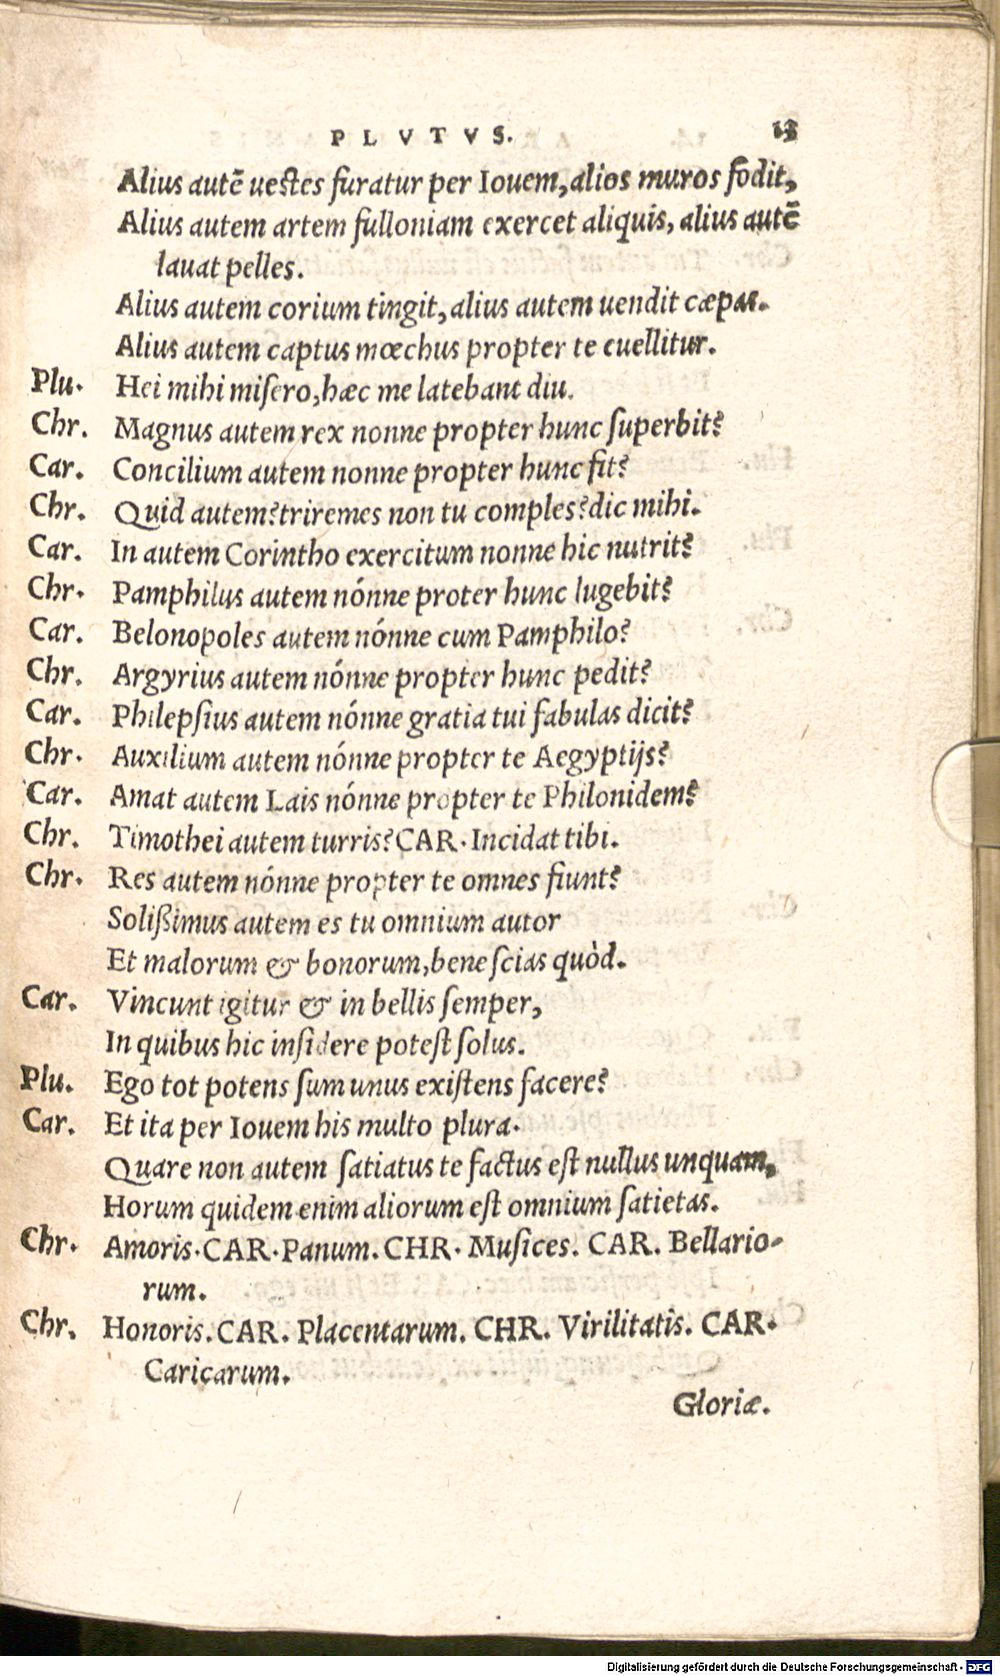 PLVTVS. 13
Alius autē uestes furatur per Iouem, alios muros fodit,
Alius autem artem fulloniam exercet aliquis, alius autē
lauat pelles.
Alius autem corium tingit, alius autem uendit cæpas.
Alius autem captus mœchus propter te euellitur.
Plu. Hei mihi misero, hæc me latebant diu.
Chr. Magnus autem rex nonne propter hunc superbit?
Car. Concilium autem nonne propter hunc fit?
Chr. Quid autem? triremes non tu comples? dic mihi.
Car. In autem Corintho exercitum nonne hic nutrit?
Chr. Pamphilus autem nónne proter hunc lugebit?
Car. Belonopoles autem nónne cum Pamphilo?
Chr. Argyrius autem nónne propter hunc pedit?
Car. Philepsius autem nónne gratia tui fabulas dicit?
Chr. Auxilium autem nónne propter te Aegyptijs?
Car. Amat autem Lais nónne propter te Philonidem?
Chr. Timothei autem turris? CAR. Incidat tibi.
Chr. Res autem nónne propter te omnes fiunt?
Solißimus autem es tu omnium autor
Et malorum & bonorum, bene scias quòd.
Car. Vincunt igitur & in bellis semper,
In quibus hic insidere potest solus.
Plu. Ego tot potens sum unus existens facere?
Car. Et ita per Iouem his multo plura.
Quare non autem satiatus te factus est nullus unquam,
Horum quidem enim aliorum est omnium satietas.
Chr. Amoris. CAR. Panum. CHR. Musices. CAR. Bellario-
rum.
Chr. Honoris. CAR. Placentarum. CHR. Virilitatis. CAR.
Caricarum.
Gloriæ.
Digitalisierung gefördert durch die Deutsche Forschungsgemeinschaft - DFG